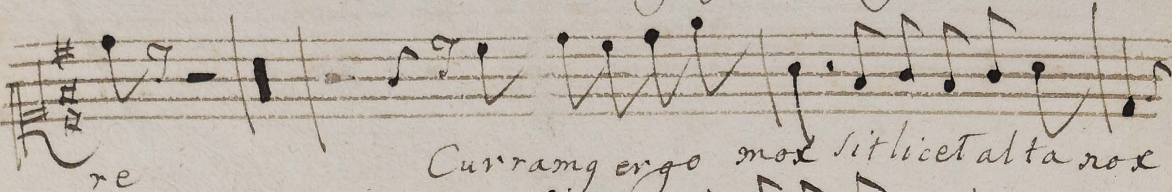 re Curramq ergo mox sit licet alta nox